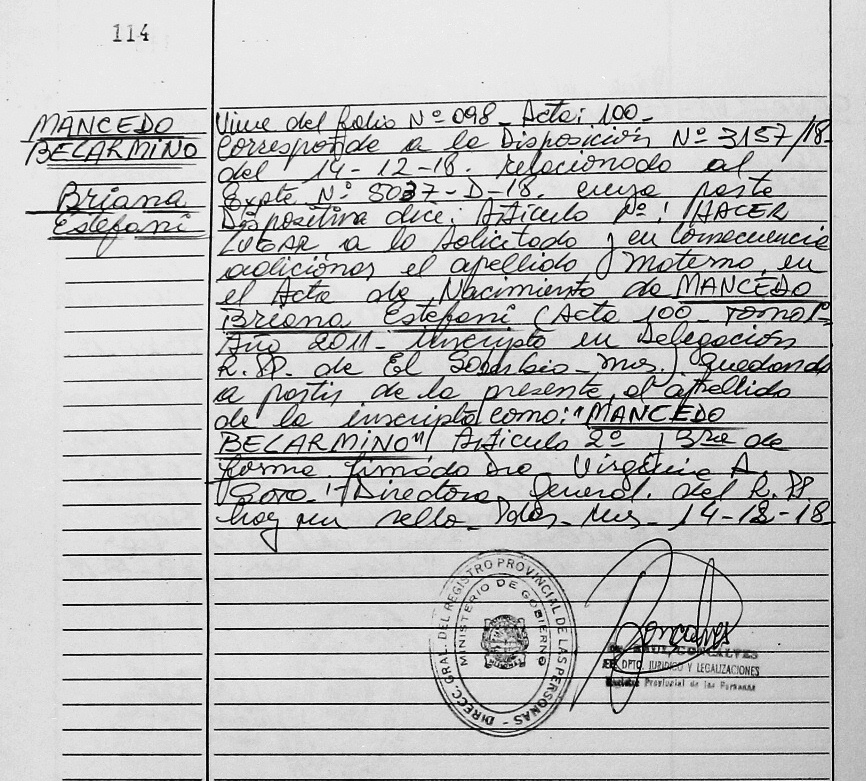 114
MANCEDO
BELARMINO
Briana
Estefani
Viene del folio Nº 098 - Acta: 100 -
Corresponde a la Disposición Nº 3157/18-
del 14-12-18. relacionado al
Expte Nº 5037-D-18. cuya parte
Dispositiva dice: Artículo 1º: HACER
LUGAR a lo solicitado y en consecuencia
adicionar el apellido materno, en
el Acta de Nacimiento de MANCEDO
Briana Estefani (Acta 100 - Tomo 1º
Año 2011 - inscripta en Delegación
R. PP. de El Soberbio - Mnes.) quedando
a partir de la presente, el apellido
de la inscripta como: "MANCEDO
BELARMINO" Artículo 2º y 3ro de
forma firmado Dra Virginia A.
Directora General. del R. PP
hay un sello - Pdas - Mnes - 14-12-18
DIREC. GRAL. DEL REGISTRO PROVINCIAL DE LAS PERSONAS -
MINISTERIO DE GOBIERNO
Goncalves
GONCALVES
JEFE DPTO. JURIDICO Y LEGALIZACIONES
Registro Provincial de las Personas